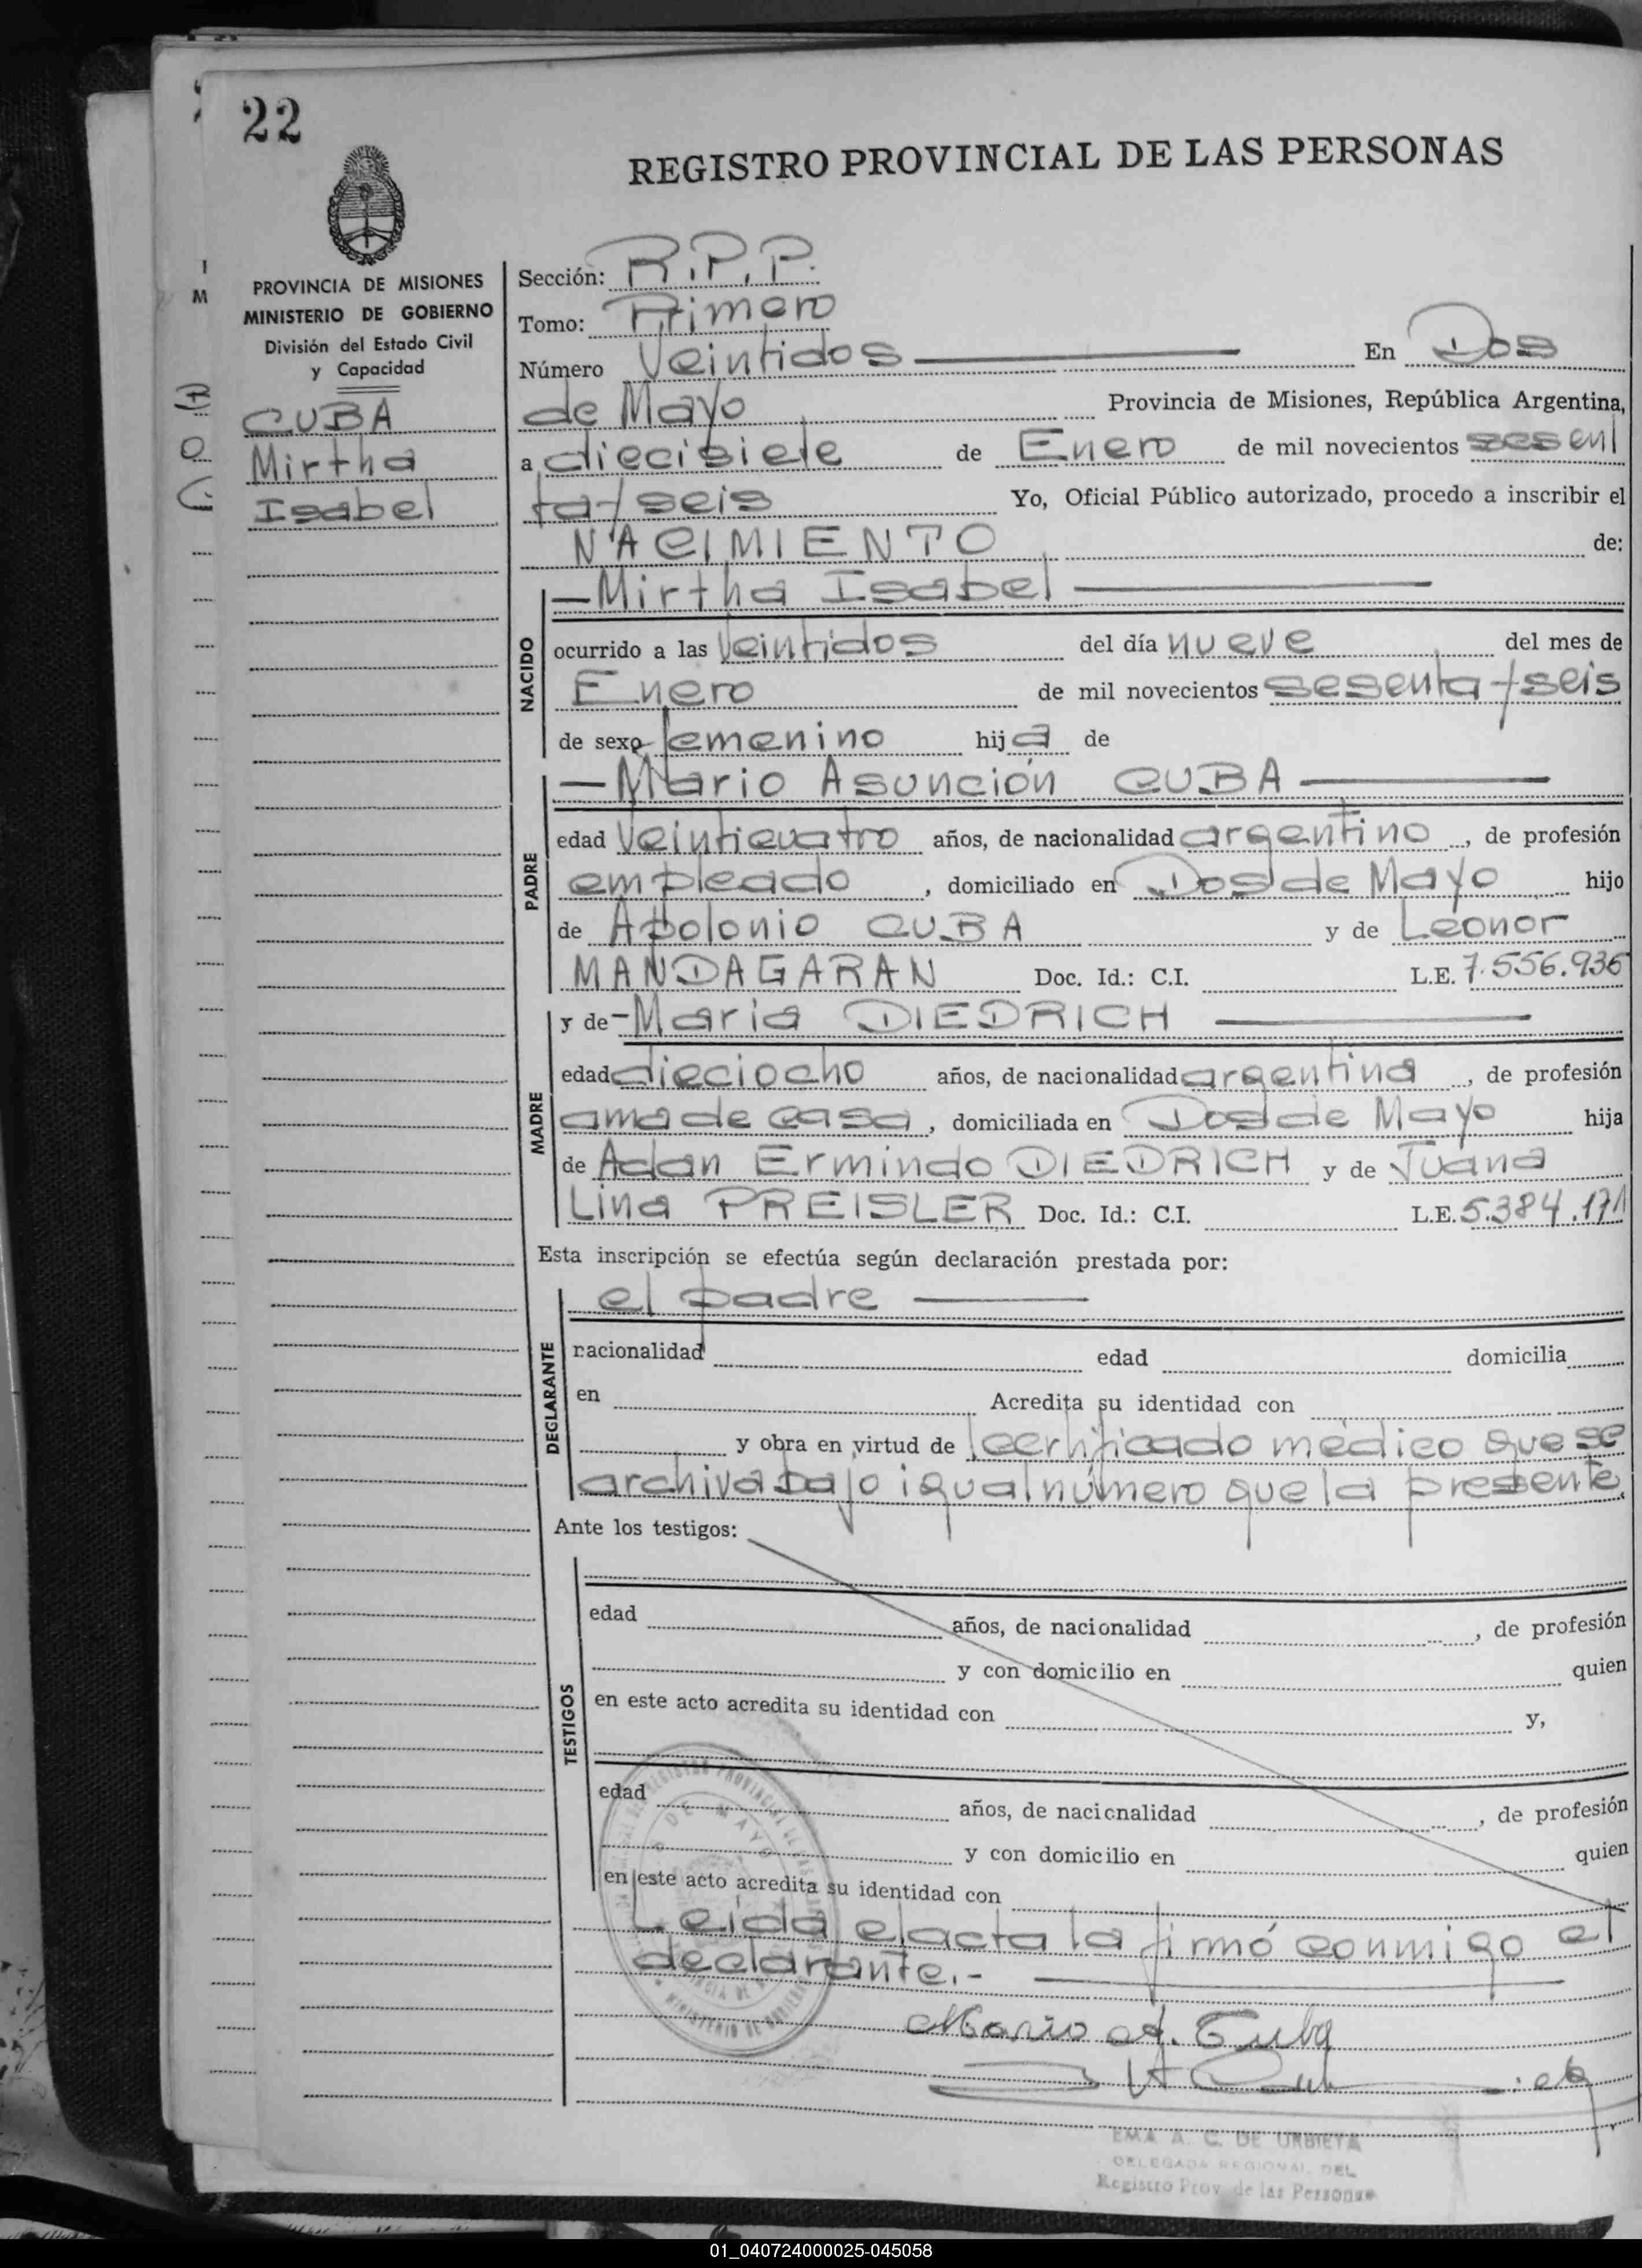 22
REGISTRO PROVINCIAL DE LAS PERSONAS
PROVINCIA DE MISIONES
MINISTERIO DE GOBIERNO
División del Estado Civil
y Capacidad
CUBA
Mirtha
Isabel
Sección: R.P.P.
Tomo: Primero
Número Veintidos En Dos
de Mayo Provincia de Misiones, República Argentina,
a diecisiete de Enero de mil novecientos sesen
ta y seis Yo, Oficial Público autorizado, procedo a inscribir el
NACIMIENTO de:
NACIDO
- Mirtha Isabel
ocurrido a las veintidos del día nueve del mes de
Enero de mil novecientos sesenta y seis
de sexo femenino hija de
PADRE
- Mario Asunción CUBA
edad veinticuatro años, de nacionalidad argentino, de profesión
empleado, domiciliado en Dos de Mayo hijo
de Apolonio CUBA y de Leonor
MANDAGARAN Doc. Id.: C.I. L.E. 7.556.936
MADRE
y de - Maria DIEDRICH
edad dieciocho años, de nacionalidad argentina, de profesión
ama de casa, domiciliada en Dos de Mayo hija
de Adan Ermindo DIEDRICH y de Juana
Lina PREISLER Doc. Id.: C.I. L.E. 5.384.171
Esta inscripción se efectúa según declaración prestada por:
DECLARANTE
el padre
nacionalidad edad domicilia
en Acredita su identidad con
y obra en virtud de certificado médico que se
archiva bajo igual número que la presente
Ante los testigos:
TESTIGOS
edad años, de nacionalidad , de profesión
y con domicilio en quien
en este acto acredita su identidad con y,
edad años, de nacionalidad , de profesión
y con domicilio en quien
en este acto acredita su identidad con
Leída el acta la firmó conmigo el
declarante.-
Mario A. Cuba
EMA A. C. DE URBIETA
DELEGADA REGIONAL DEL
Registro Prov. de las Personas
01_040724000025-045058